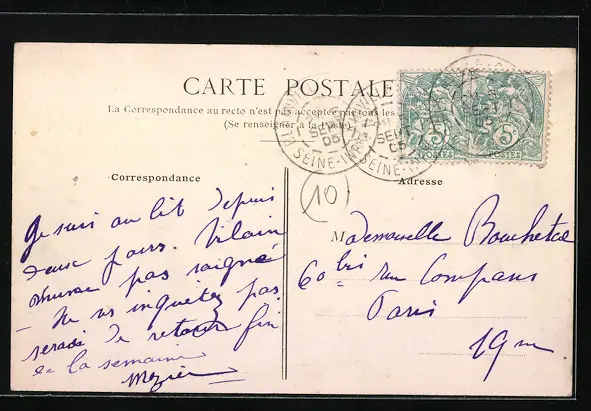 CARTE POSTALE
La Correspondance au recto n'est pas acceptée par tous les
(Se renseigner à la Poste)
Correspondance
Adresse
SEPT
05
SEINE-INF
SEPT
05
SEINE-IN
5c
POSTES
5c
POSTES
10
Je suis au lit depuis
deux jours. Vilain
rhume pas soigné
— Ne vs inquiétez pas
serai de retour fin
de la semaine
Mademoiselle Bouchetal
60 bis rue Compans
Paris
19m